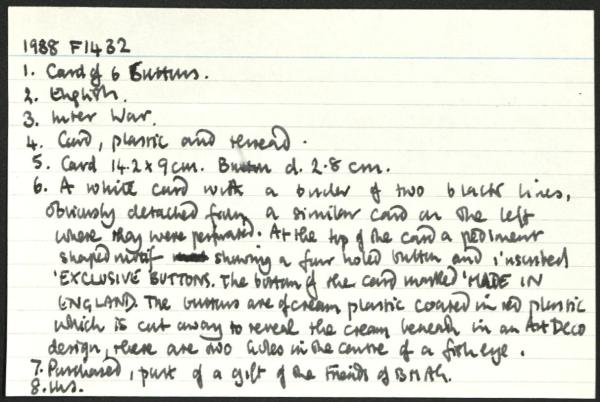 1988 F1432
1. Card of 6 Buttons.
2. English.
3. Inter War.
4. Card, plastic and thread.
5. Card 14.2 x 9cm. Button d. 2.8 cm.
6. A white card with a border of two black lines,
obviously detached from a similar card on the left
where they were perforated. At the top of the card a pediment
shaped motif showing a four holed button and inscribed
'EXCLUSIVE BUTTONS. The bottom of the card marked 'MADE IN
ENGLAND. The buttons are of cream plastic coated in red plastic
which is cut away to reveal the cream beneath in an Art Deco
design, there are two holes in the centre of a fish eye.
7. Purchased, part of a gift of the Friends of BMAG.
8.